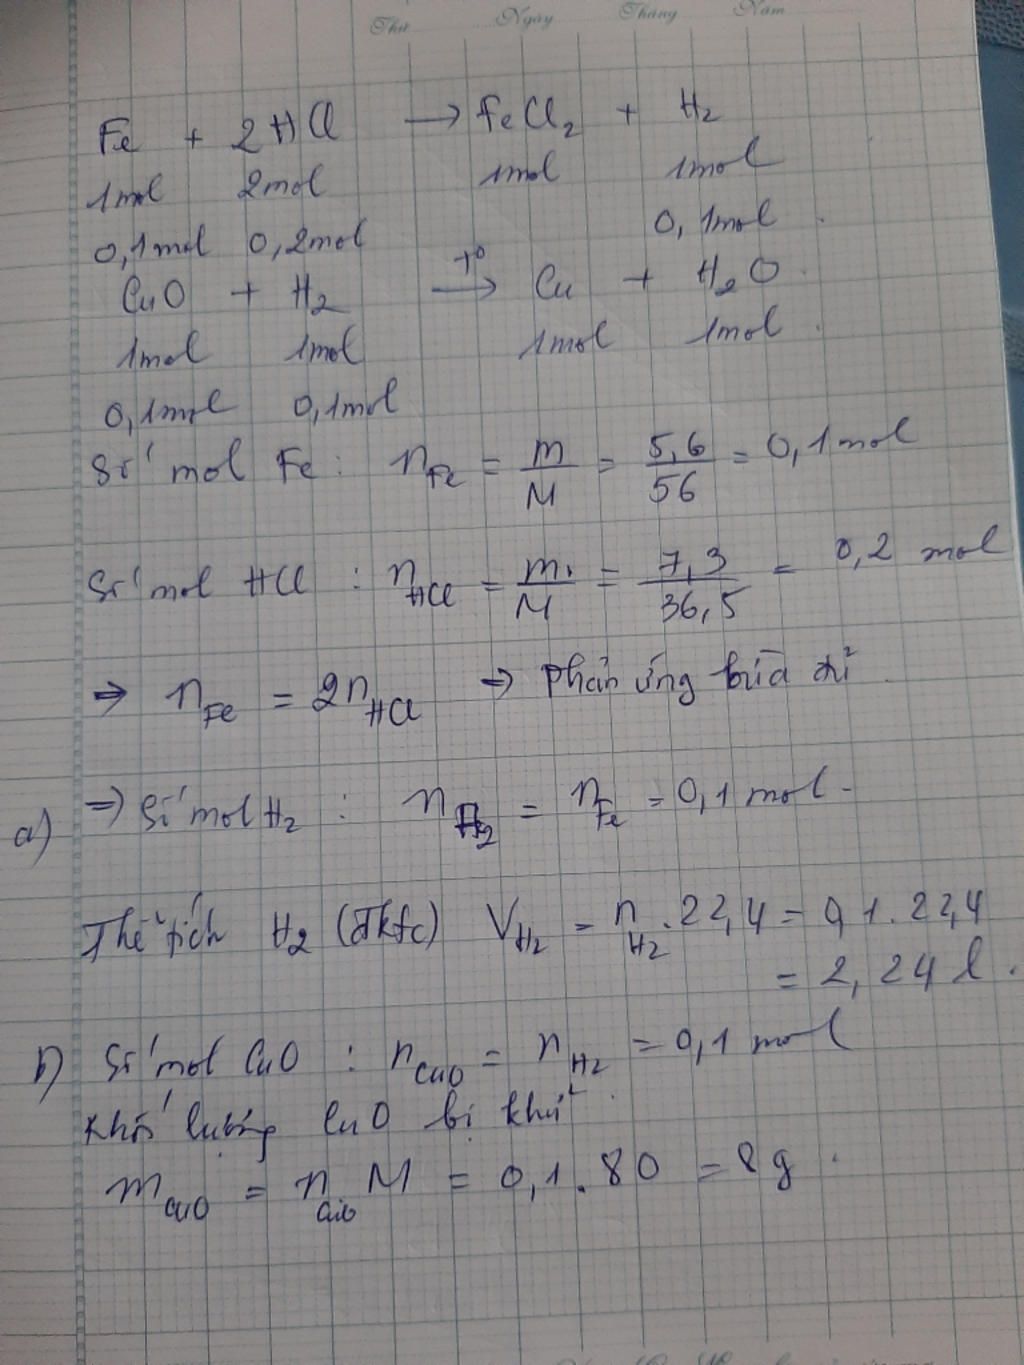 Thứ Ngày Tháng Năm
Fe + 2HCl → FeCl₂ + H₂
1mol 2mol 1mol 1mol
0,1mol 0,2mol 0,1mol.
CuO + H₂ →(t°) Cu + H₂O
1mol 1mol 1mol 1mol.
0,1mol 0,1mol
Số mol Fe : n_Fe = m/M = 5,6/56 = 0,1mol
Số mol HCl : n_HCl = m/M = 7,3/36,5 = 0,2 mol
⇒ n_Fe = 2n_HCl ⇒ Phản ứng vừa đủ.
a) ⇒ Số mol H₂ : n_H₂ = n_Fe = 0,1mol.
Thể tích H₂ (đktc) V_H₂ = n_H₂.22,4 = 0,1.22,4
= 2,24 l.
b) Số mol CuO : n_CuO = n_H₂ = 0,1mol
Khối lượng CuO bị khử
m_CuO = n_CuO M = 0,1.80 = 8g.